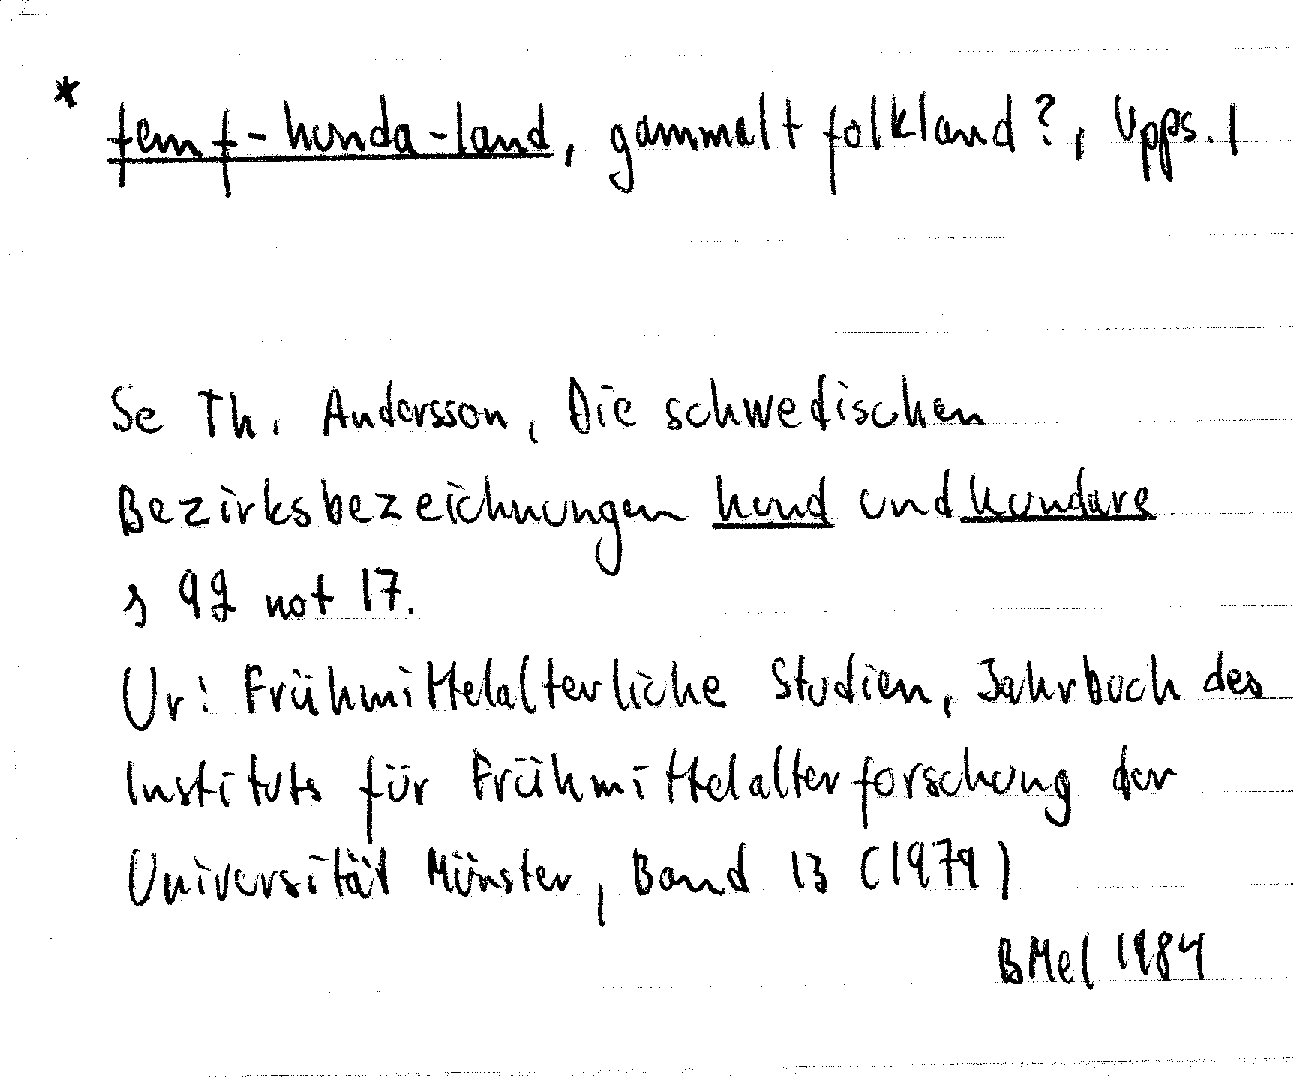 * femf-hunda-land, gammalt folkland?, Upps. l
Se Th. Andersson, Die schwedischen
Bezirksbezeichnungen hund und hundare
s 92 not 17.
Ur: Frühmittelalterliche Studien, Jahrbuch des
Instituts für Frühmittelalterforschung der
Universität Münster, Band 13 (1979)
BMel 1984